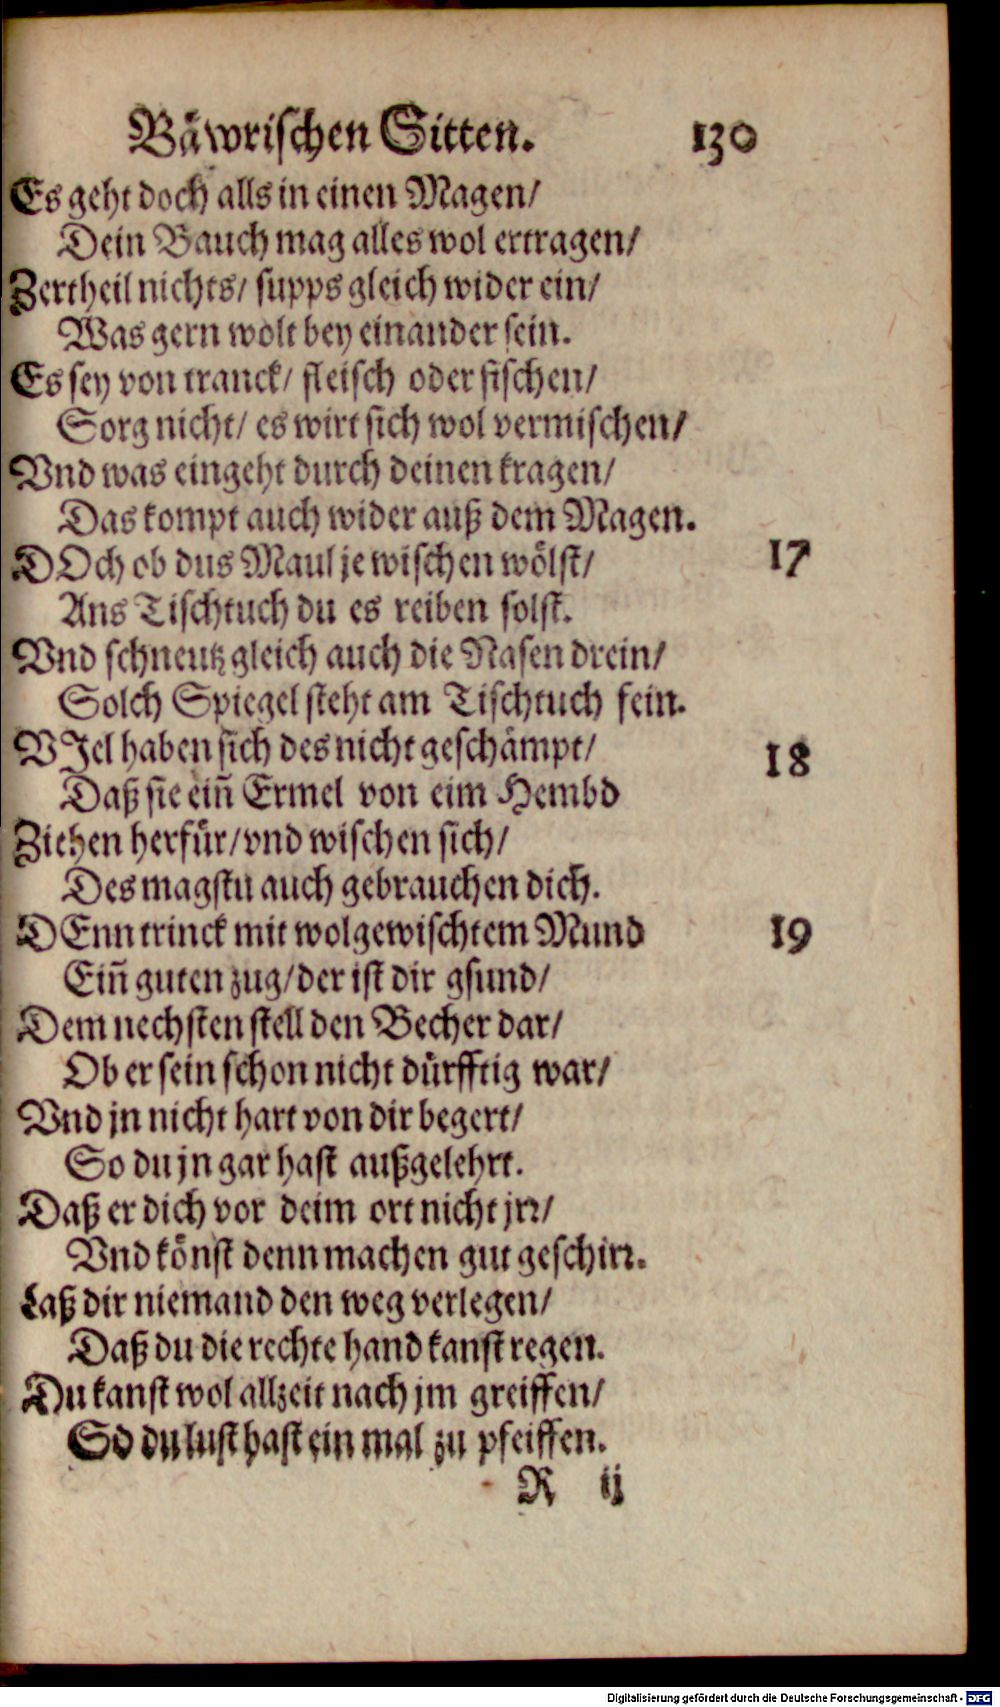 Bäwrischen Sitten. 130
Es geht doch alls in einen Magen/
Dein Bauch mag alles wol ertragen/
Zertheil nichts/ supps gleich wider ein/
Was gern wolt bey einander sein.
Es sey von tranck/ fleisch oder fischen/
Sorg nicht/ es wirt sich wol vermischen/
Vnd was eingeht durch deinen kragen/
Das kompt auch wider auß dem Magen.
DOch ob dus Maul je wischen wölst/ 17
Ans Tischtuch du es reiben solst.
Vnd schneutz gleich auch die Nasen drein/
Solch Spiegel steht am Tischtuch fein.
VIel haben sich des nicht geschämpt/ 18
Daß sie eiñ Ermel von eim Hembd
Ziehen herfür/ vnd wischen sich/
Des magstu auch gebrauchen dich.
DEnn trinck mit wolgewischtem Mund 19
Eiñ guten zug/ der ist dir gsund/
Dem nechsten stell den Becher dar/
Ob er sein schon nicht dürfftig war/
Vnd jn nicht hart von dir begert/
So du jn gar hast außgelehrt.
Daß er dich vor deim ort nicht jrr/
Vnd könst denn machen gut geschirr.
Laß dir niemand den weg verlegen/
Daß du die rechte hand kanst regen.
Du kanst wol allzeit nach jm greiffen/
So du lust hast ein mal zu pfeiffen.
R ij
Digitalisierung gefördert durch die Deutsche Forschungsgemeinschaft - DFG